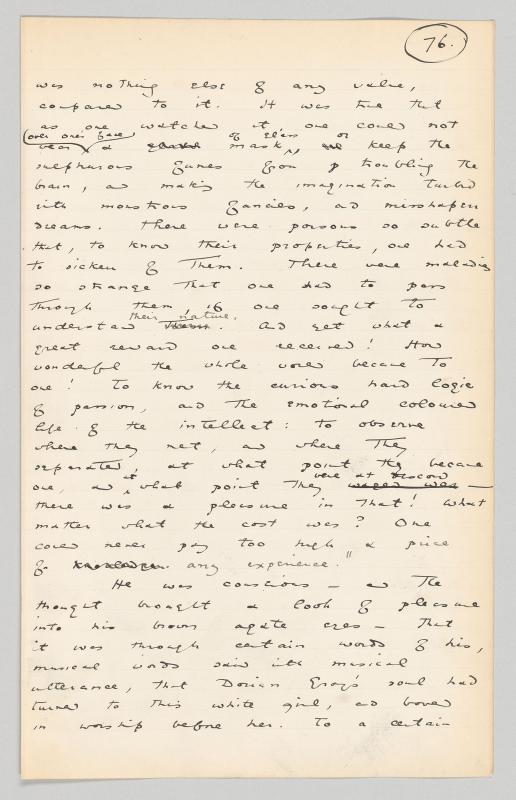 76.
was nothing else of any value,
compared to it. It was true that
as one watched it one could not
over one's face of glass or
wear a glass mask, or keep the
sulphurous fumes from troubling the
brain, and making the imagination turbid
with monstrous fancies, and misshapen
dreams. There were poisons so subtle
that, to know their properties, one had
to sicken of them. There were maladies
so strange that one had to pass
through them if one sought to
their nature.
understand them. And yet what a
great reward one received! How
wonderful the whole world became to
one! To know the curious hard logic
of passion, and the emotional coloured
life of the intellect: to observe
where they met, and where they
separated, at what point they became
at were at discord
one, and what point they waged war —
there was a pleasure in that! What
matter what the cost was? One
could never pay too high a price
for knowledge. any experience."
He was conscious — and the
thought brought a look of pleasure
into his brown agate eyes — that
it was through certain words of his,
musical words said with musical
utterance, that Dorian Gray's soul had
turned to this white girl, and bowed
in worship before her. To a certain